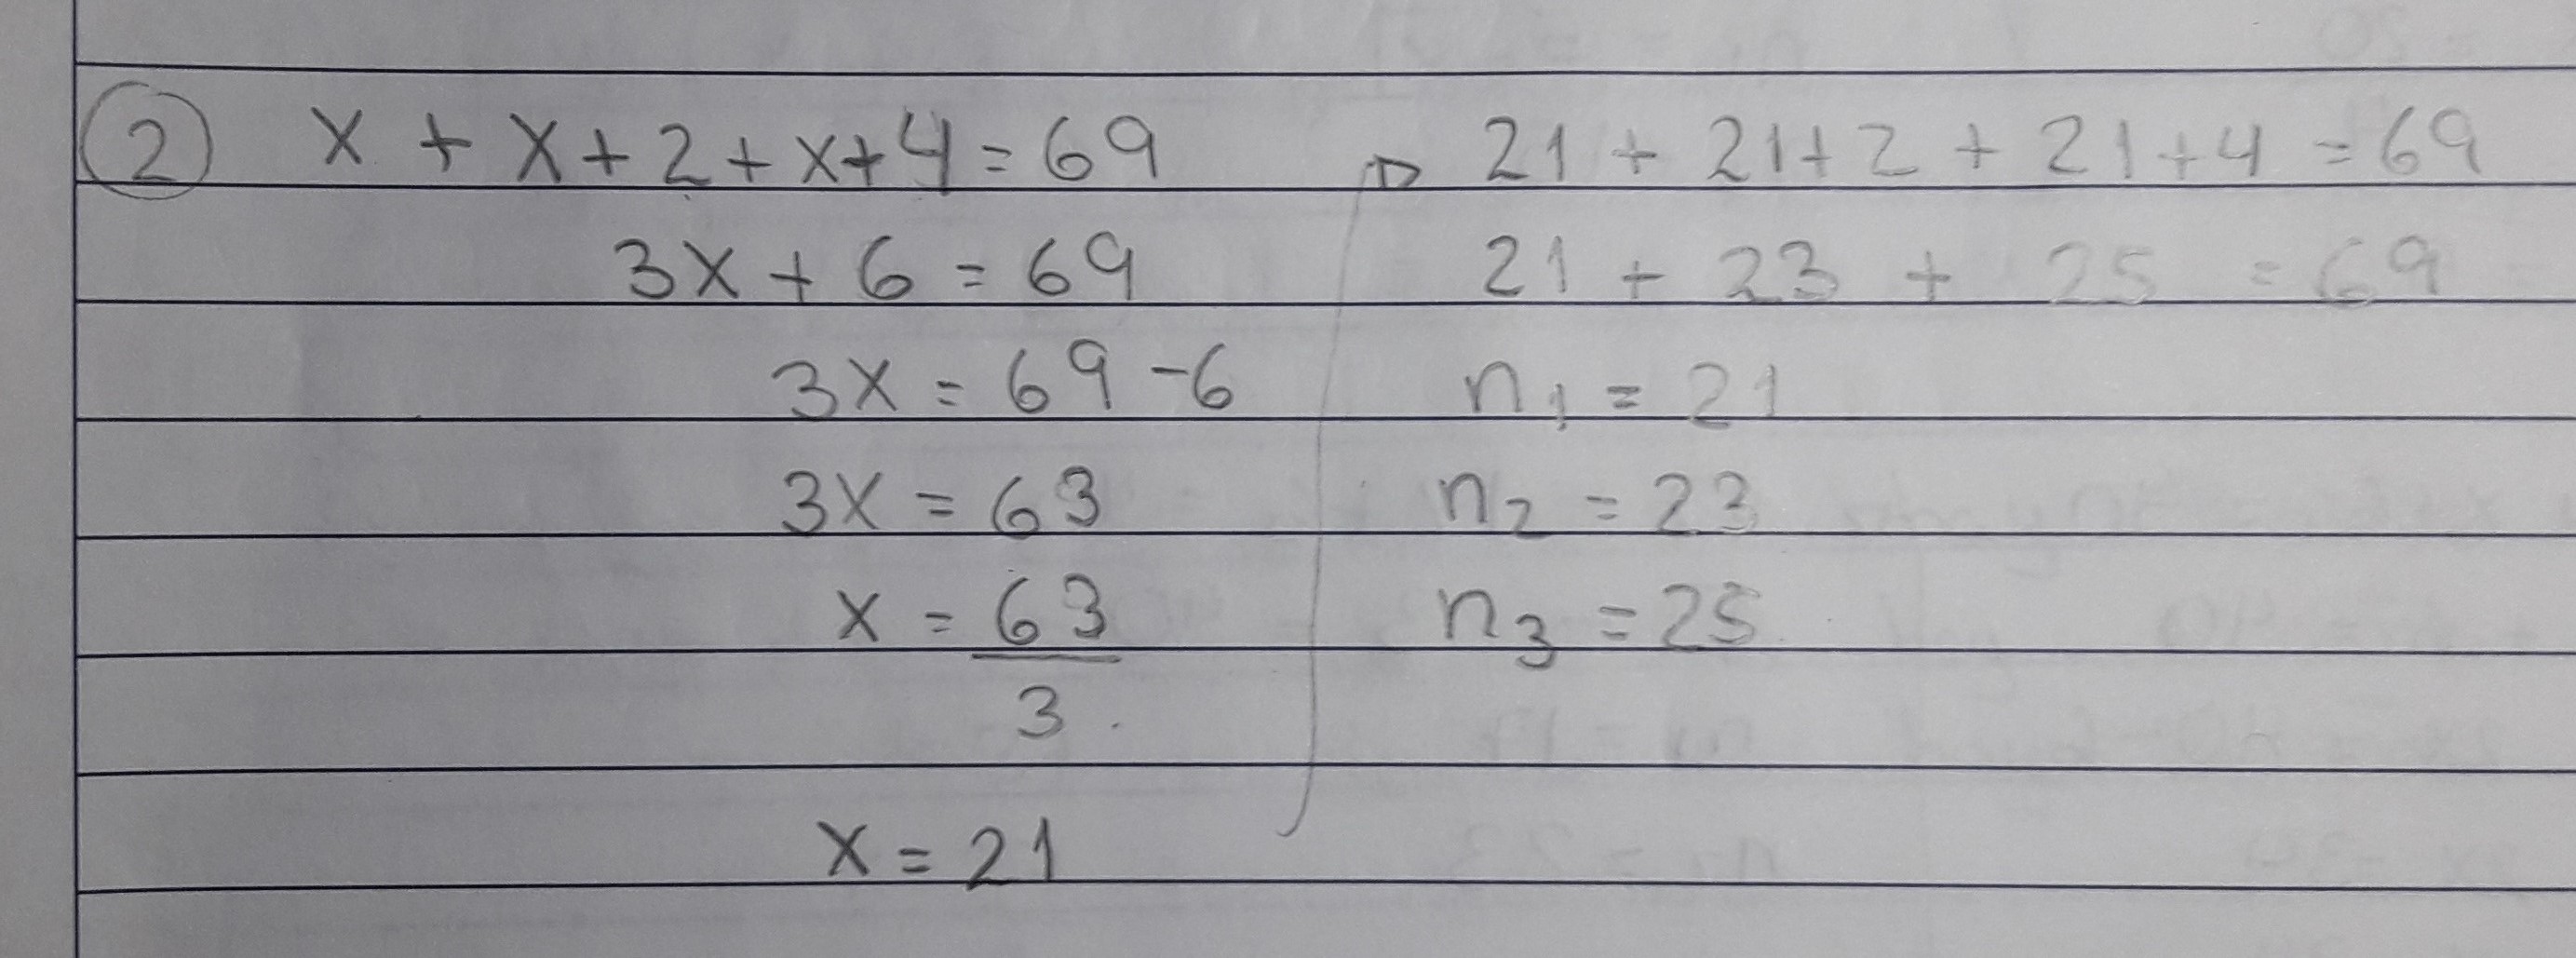 2 x + x + 2 + x + 4 = 69
3x + 6 = 69
3x = 69 - 6
3x = 63
x = 63
3
x = 21
21 + 21 + 2 + 21 + 4 = 69
21 + 23 + 25 = 69
n1 = 21
n2 = 23
n3 = 25